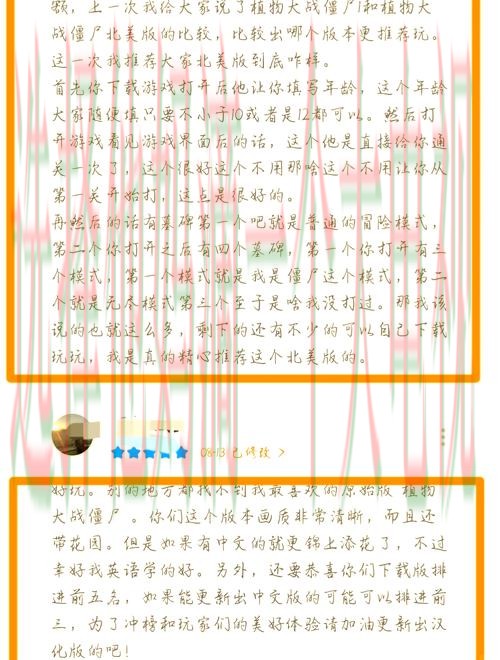 频，上一次我给大家说了植物大战僵尸1和植物大
战僵尸北美版的比较，比较出哪个版本更推荐玩。
这一次我推荐大家北美版到底咋样。
首先你下载游戏打开后他让你填写年龄，这个年龄
大家随便填只要不小于10或者是12都可以。然后打
开游戏看见游戏界面后的话，这个他是直接给你通
关一次了，这个很好这个不用那啥这个不用让你从
第一关开始打，这点是很好的。
再然后的话有墓碑第一个吧就是普通的冒险模式，
第二个你打开之后有四个墓碑，第一个你打开有三
个模式，第一个模式就是我是僵尸这个模式，第二
个就是无尽模式第三个至于是啥我没打过。那我该
说的也就这么多，剩下的还有不少的可以自己下载
玩玩，我是真的精心推荐这个北美版的。
08-13 已修改 >
好玩。别的地方都找不到我最喜欢的原始版 植物
大战僵尸 。你们这个版本画质非常清晰，而且还
带花园。但是如果有中文的就更锦上添花了，不过
幸好我英语学的好。另外，还要恭喜你们下载版排
进前五名，如果能更新出中文版的可能可以排进前
三，为了冲榜和玩家们的美好体验请加油更新出汉
化版的吧！